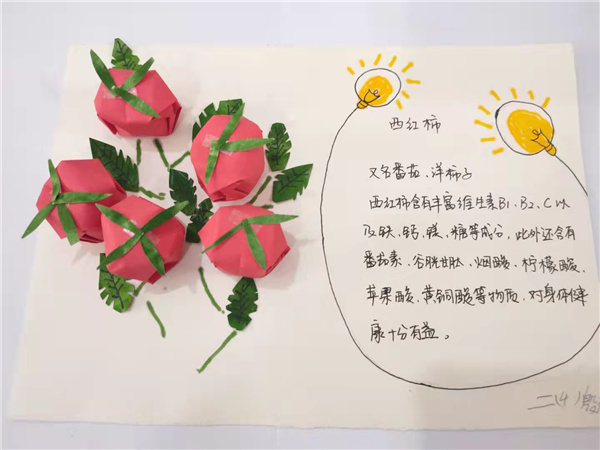 西红柿
又名番茄、洋柿子
西红柿含有丰富维生素B1、B2、C以
及铁、钙、镁、糖等成分，此外还含有
番茄素、谷胱甘肽、烟酸、柠檬酸、
苹果酸、黄铜酸等物质，对身体健
康十分有益。
二(4)